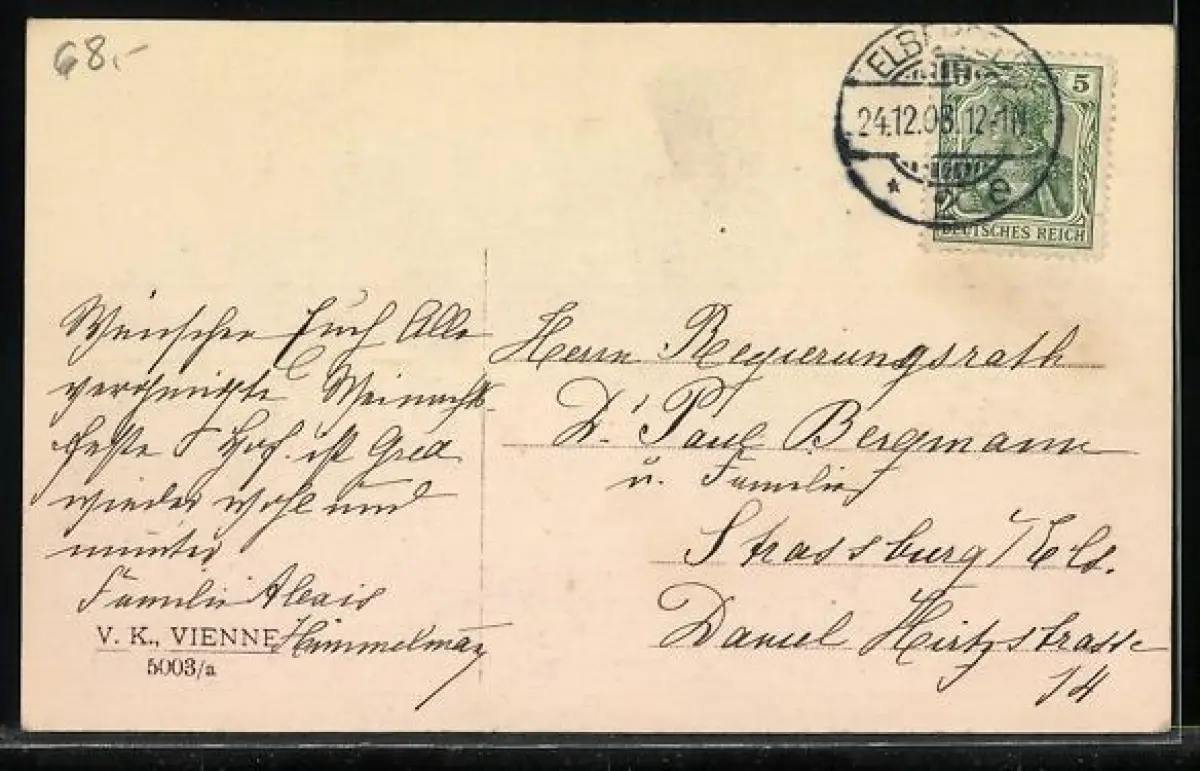 68.-
ELBERFELD
24.12.08.12-1N
* 2 e
5
DEUTSCHES REICH
Wünschen Euch Alle
vergnügte Weinachts-
feste Hof. ist Gred
wieder wohl und
munter
Familie Alexis
Himmelman
V. K., VIENNE
5003/a
Herrn Regierungsrath
Dr. Paul Bergmann
u. Familie
Strassburg / Els.
Daniel Hirtzstrasse
14